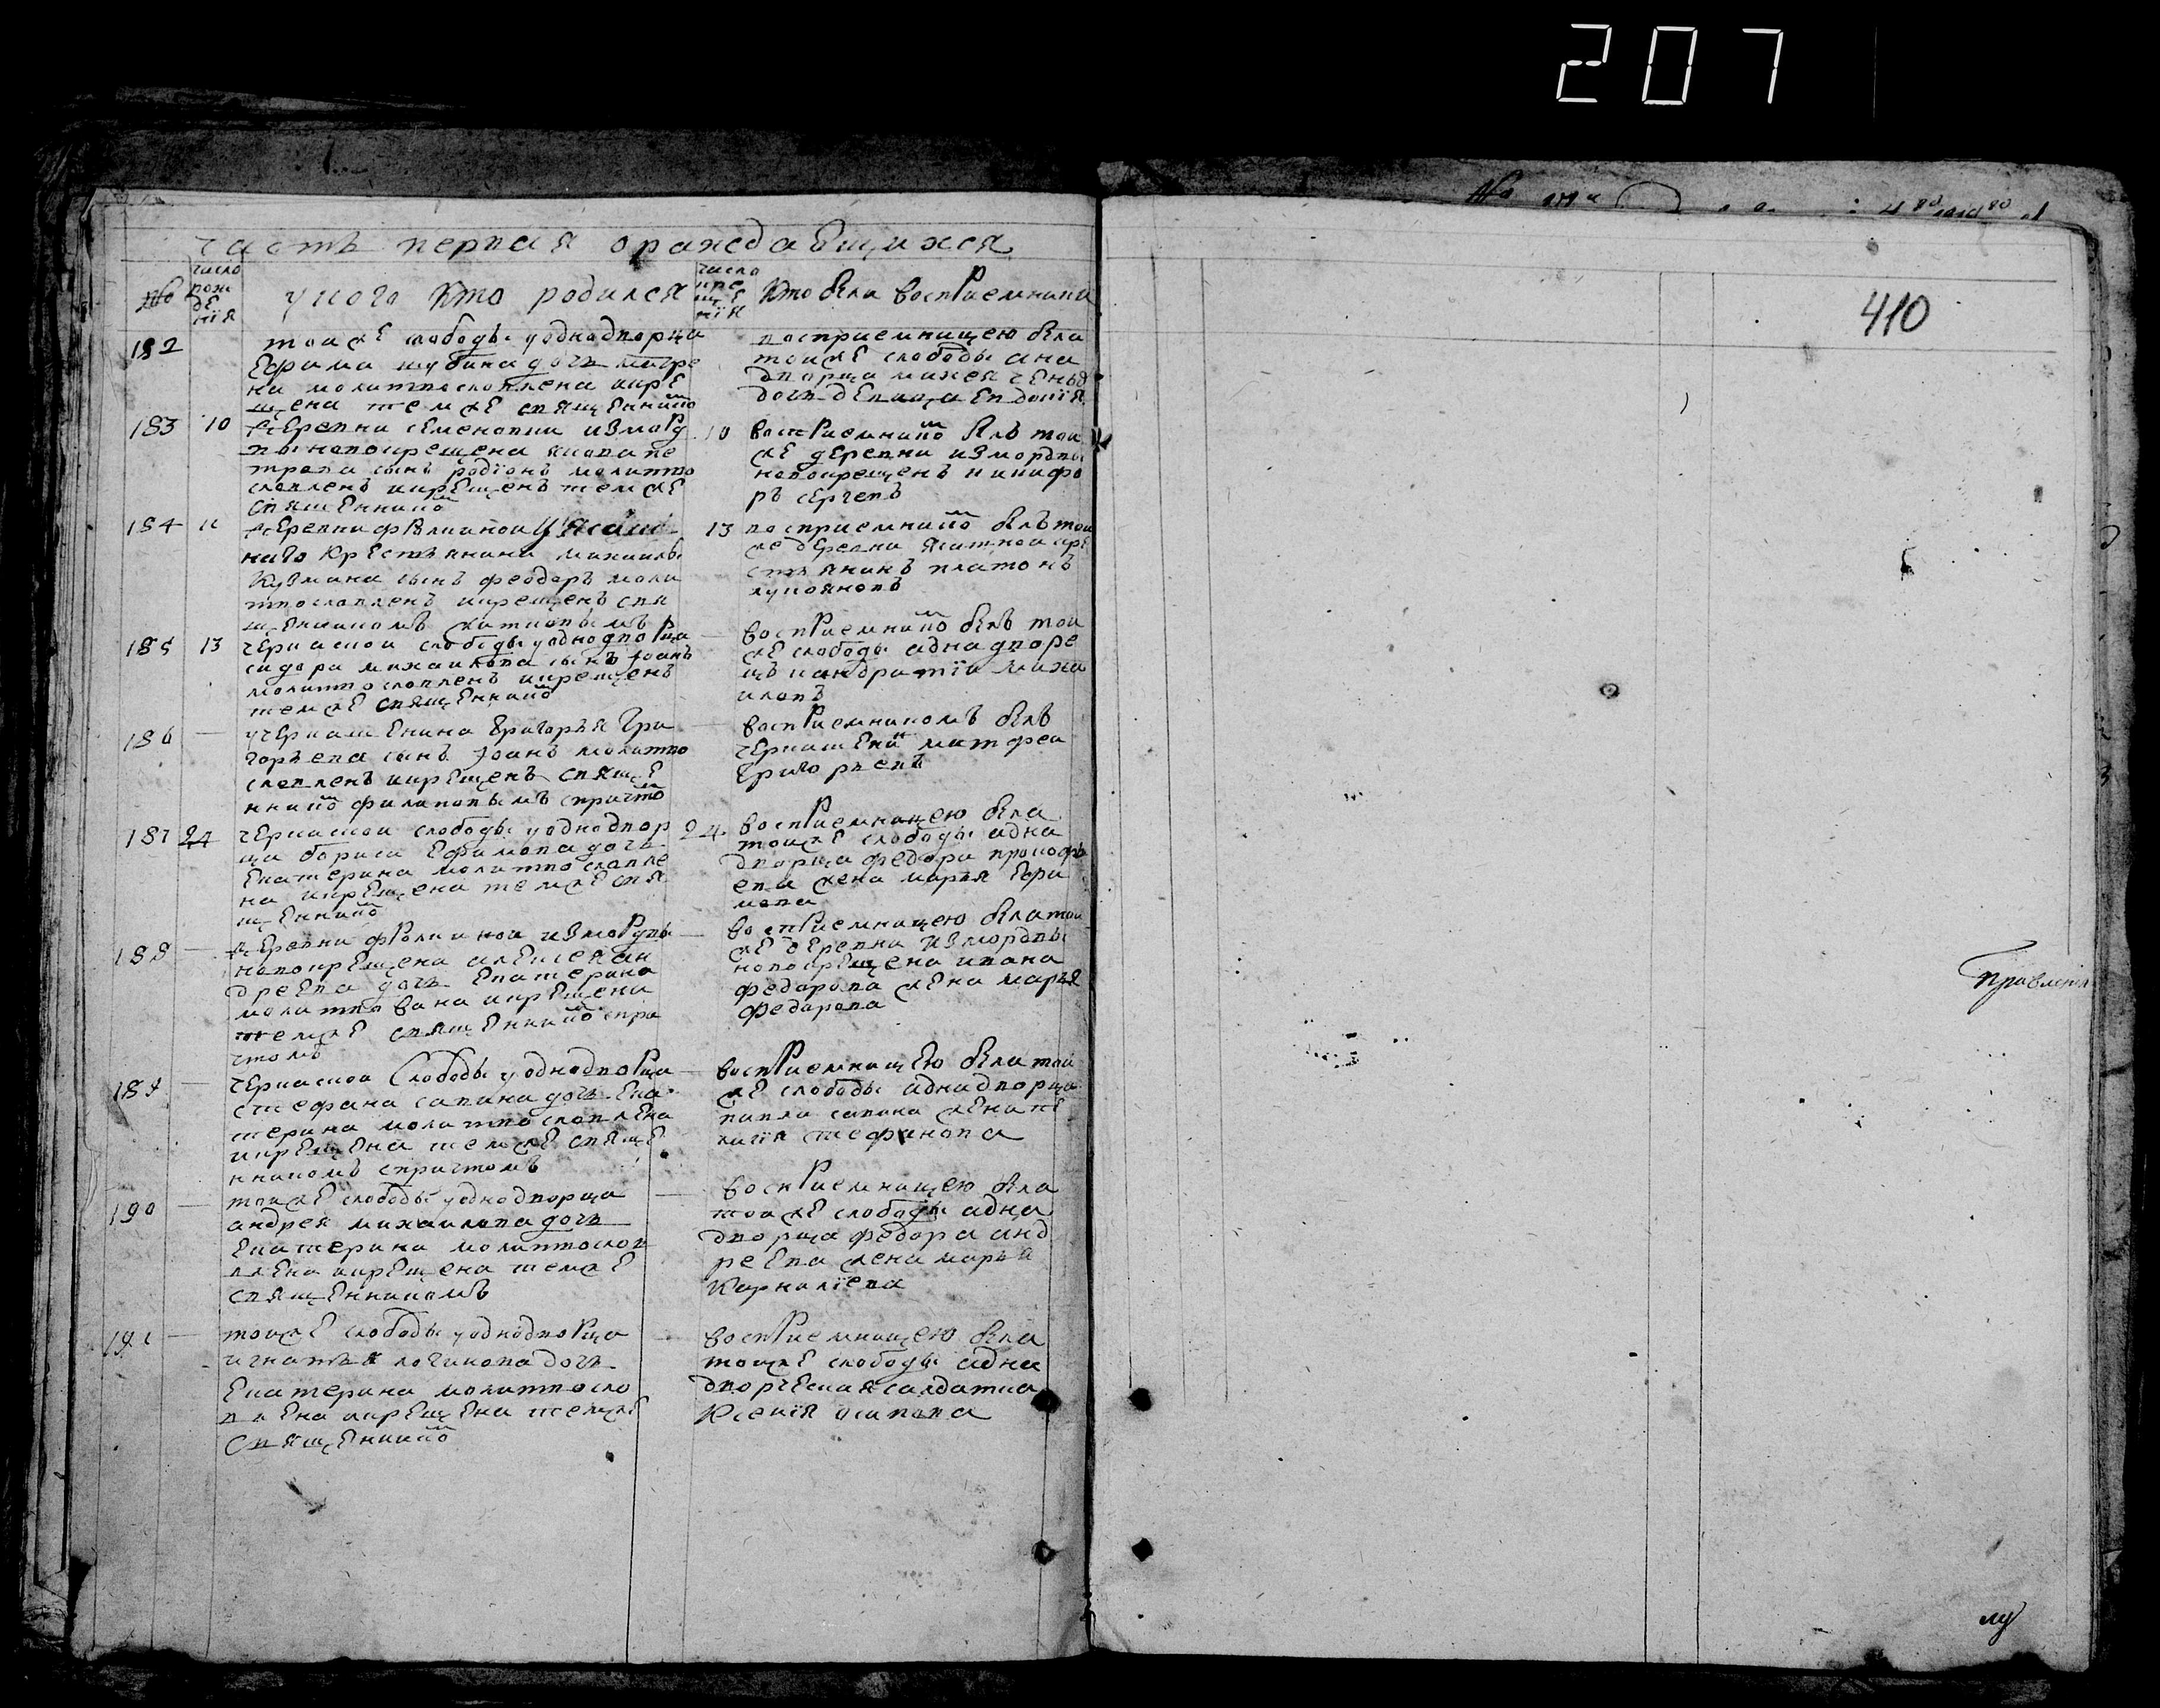 207
часть первая ораждающихся
№
число рож дЕ нїя
у кого кто родился
число кре щЕ нїя
кто были восприемники
410
182
тои жЕ слободы уоднодворца
Ефрима шубина дочь матре
на молитвословлена икрЕ
щена темжЕ священнико м
восприемницею была
тоижЕ слободы адна
дворца михея
дочь дЕвица Евдокїя
183 10
дЕревни сЕменовки изморд
вы новокрещена якова пе
трова сынъ родїонъ молитво
словленъ икрЕщенъ темжЕ
священнико м
10
восприемнико м былъ тои
жЕ деревни измордвы
новокрещенъ никифо
ръ сЕргеевъ
184 11
дЕревни
наго крестьянина михаила
кузмина сынъ феодоръ моли
твословленъ икрещенъ свя
щЕнникомъ
13
восприемнико м былъ тои
же дЕревни кре
стьянинъ платонъ
лукояновъ
185 13
чЕркаскои слободы уоднодворца
сидора михаилова сынъ Iоанъ
молитвословленъ икрещенъ
темжЕ священнико м
восприемнико м былъ тои
жЕ слободы аднадворе
цъ кандратїи миха
иловъ
186
учЕркашЕнина григорья гри
горьева сынъ Iоанъ молитво
словленъ икрЕщенъ свящЕ
ннико м филиповымъ спричто м
восприемникомъ былъ
чЕркашЕни н матфеи
григорьевъ
187 24
чЕркаскои слободы уоднодвор
ца бориса Ефимова дочь
Екатерина молитвословле
на икрЕщена темжЕ свя
щЕннико м
24
восприемницею была
тоижЕ слободы адна
дворца федора прокофь
ева жена марья Ефи
мова
188
дЕревни измордвы
новокрЕщена алЕксЕя ан
дреЕва дочь Екатерина
молитвована икрЕщена
темжЕ священнико м спри
чтомъ
восприемницею была тои
жЕ дЕревни измордвы
новокрЕщена ивана
федорова жЕна марья
федорова
189
чЕркаскои слободы уоднодворца
стефана савина дочь Ека
терина молитвословлЕна
икрЕщЕна темжЕ свящЕ
нникомъ спричтомъ
восприемницЕю была тои
жЕ слободы аднадворца
павла савина жЕна пЕ
лагїя стефанова
190
тоижЕ слободы уоднодворца
андрея михаилова дочь
Екатерина молитвослов
лЕна икрЕщена темжЕ
свящЕнникомъ
восприемницею была
тоижЕ слободы адна
дворца федора анд
реЕва жена марья
карнилїева
191
тоижЕ слободы уоднодворца
игнатья логинова дочь
Екатерина молитвосло
влЕна икрЕщЕна темжЕ
свящЕннико м
восприемницею была
тоижЕ слободы адна
дворчЕская салдатка
ксенїя осипова